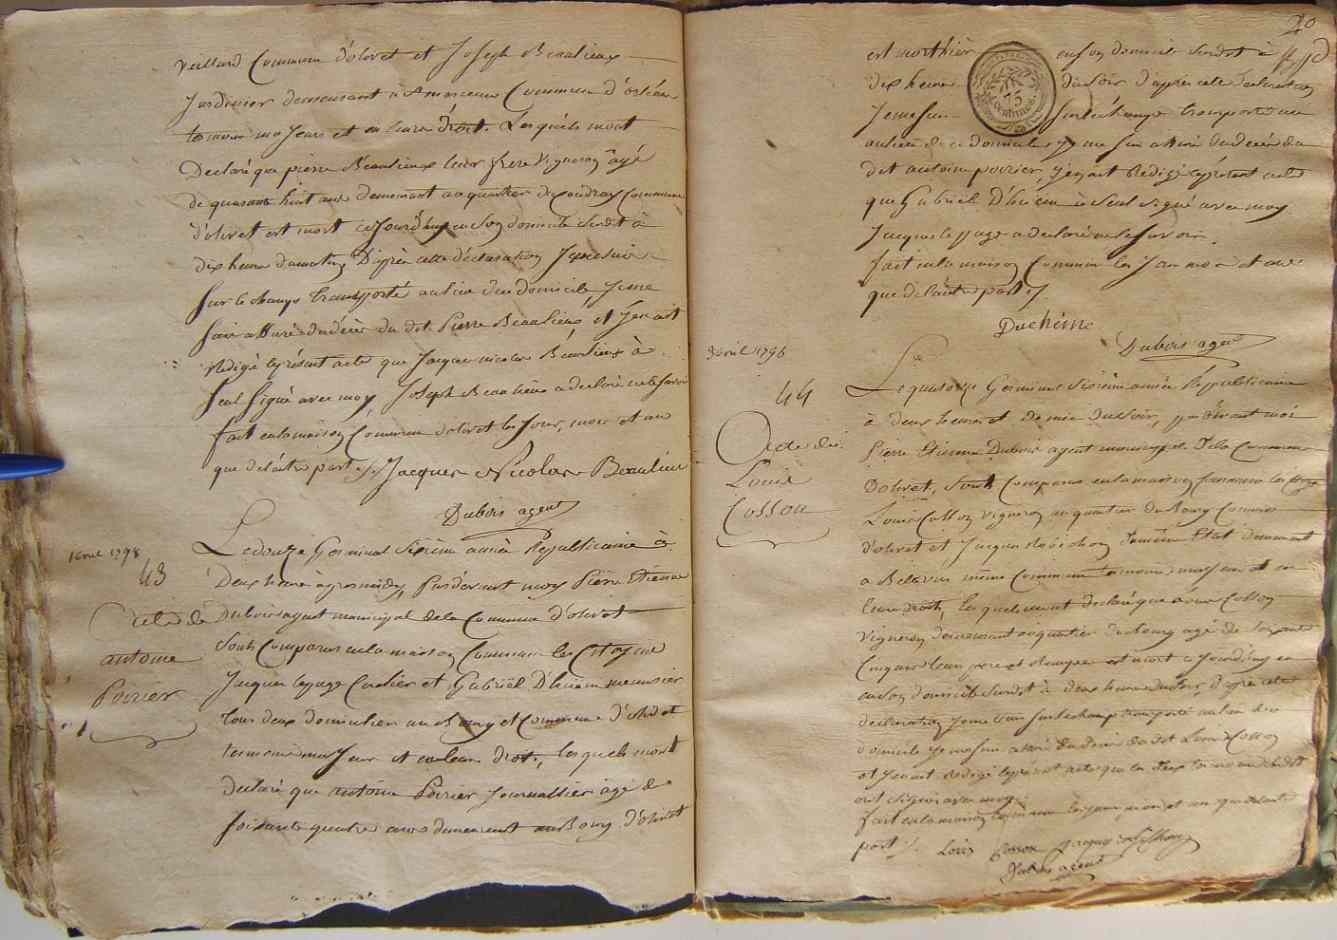 veillard Commune d'olivet et Joseph Beaulieux
Jardinier demeurant à St marceau Commune d'orléans
temoins majeurs et en leurs droit. Lesquels mont
Declaré que pierre Beaulieux leur frere vigneron âgé
de quarante huit ans demeurant au quartier du Commune
d'olivet est mort cejourdhuy en son domicile sus dit à
dix heure du matin, D'après cette déclaration Je me suis
sur le champ transporté au lieu dudit domicile Je me
suis assuré du décès du dit Pierre Beaulieux et J'en ait
rédigé le présent acte que Jacques nicolas Beaulieux à
seul signé avec moy Joseph Beaulieux a déclaré ne le savoir
fait en la maison Commune d'olivet les Jour, mois et an
que de l'autre part ./. Jacques Nicolas Beaulieu
Dubois agent
1 avril 1798
43
acte de
antoine
Poirier
Le douze Germinal Sixième année Republicaine à
Deux heure après midy, Pardevant moy Pierre Etienne
Dubois agent municipal de la Commune d'olivet
Sont Comparus en la maison Commune les Citoyens
Jacques lepage Cordier et Gabriel D'huieme meunier
tous deux domicilies au Bourg et Commune d'olivet
temoins majeurs et en leurs droit, lesquels mont
déclaré que antoine Poirier Journallier âgé de
soixante quatre ans demeurant au Bourg d'olivet
20
est mort hier en son domicile susdit à
dix heure du soir d'après cette declaration
Je me suis sur le champ transporté
au lieu de ce domicile Je me suis assuré du décès du
dit antoine poirier, j'en ait rédigé le présent acte
que Gabriel D'huieme à Seul signé avec moy
Jacques lepage a declaré ne le savoir.
fait en la maison Commune les Jour mois et an
que de l'autre part ./.
Duchéme
Dubois agent
3 avril 1798
44
Acte de
Louis
Cosson
Le quatorze Germinal Sixième année Républicaine
à deux heure et demie du soir, pardevant moi
Pierre Etienne Dubois agent municipal de la Commune
D'olivet, sont Comparus en la maison Commune les
Louis Cosson vigneron au quartier du Bourg Commune
d'olivet et Jacques Robichon même Etat Demeurant
à Bellevue même Commune temoins majeurs et en
leurs droits, lesquels mont declaré que Louis Cosson
vigneron demeurant au quartier du Bourg agé de soixante
Cinq ans leur pere et est mort ce Jourdhuy
en son domicile susdit à deux heure du soir D'après cette
declaration Je me suis sur le champ transporté au lieu du
domicile Je me suis assuré du décès du dit Louis Cosson
et J'en ait redigé le présent acte que les deux temoins
ont signés avec moy
fait en la maison commune les jour mois et an que de l'autre
part ./. Louis Cosson Jacques robichon
Dubois agent